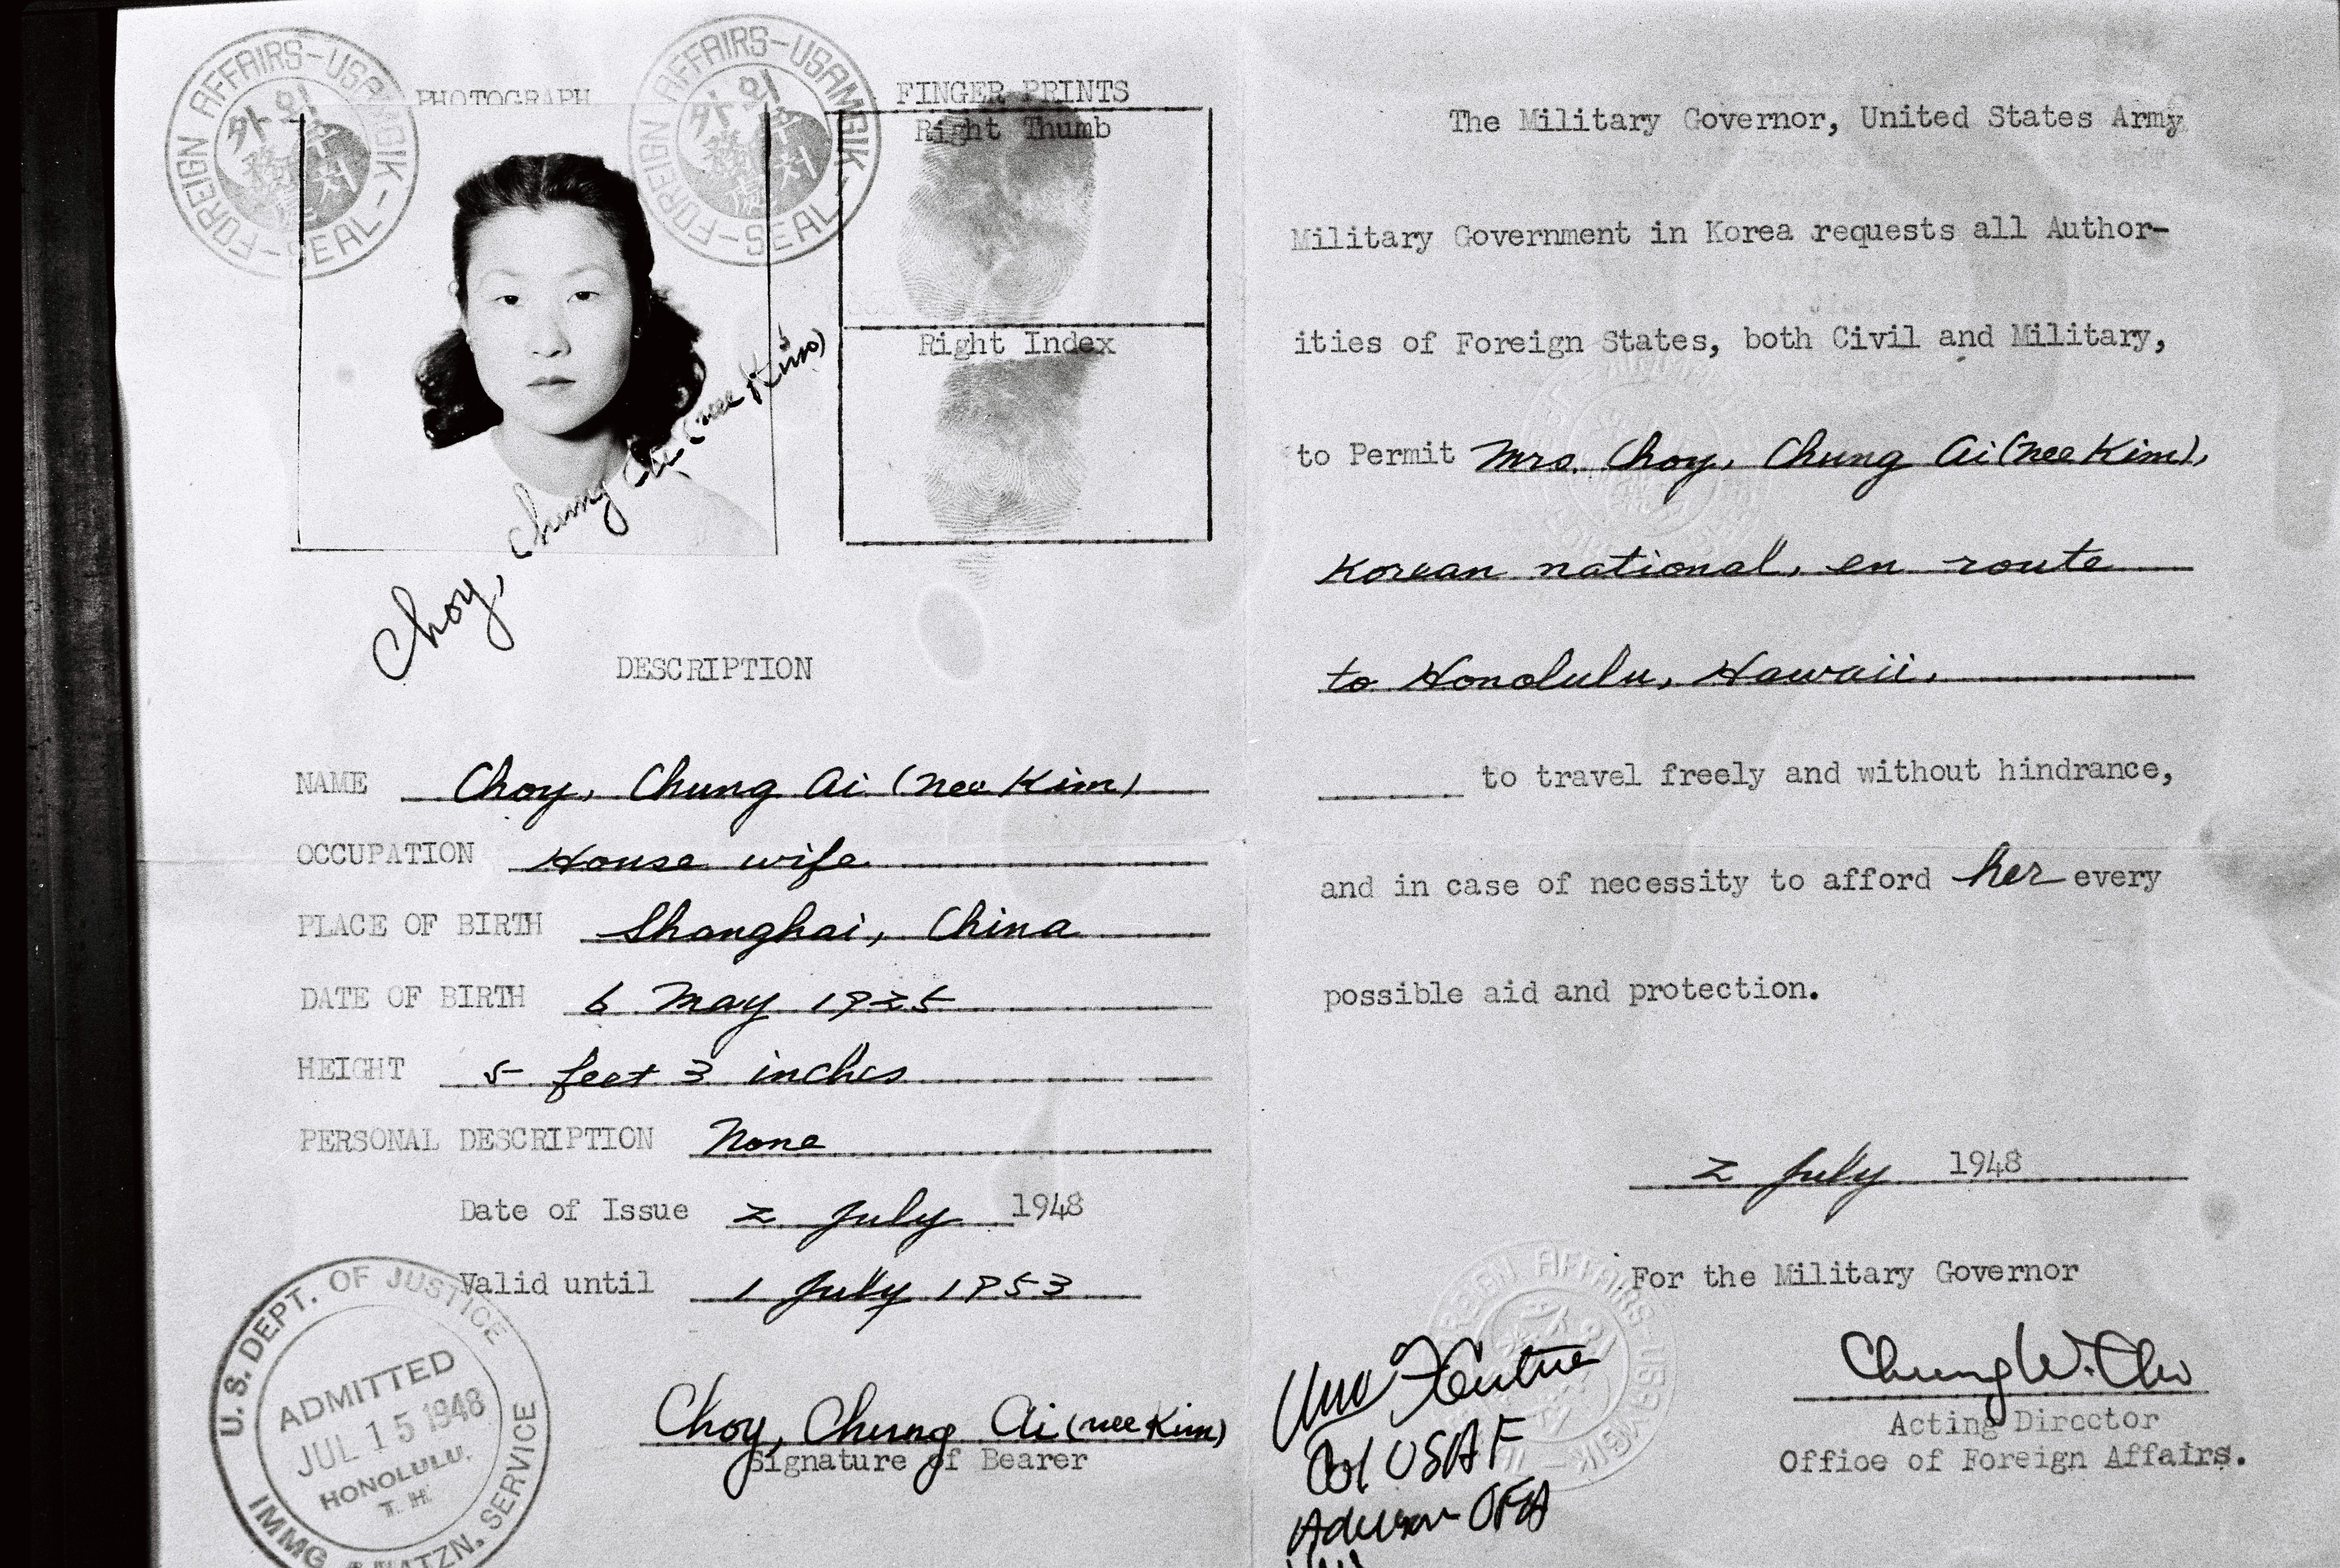 FOREIGN AFFAIRS-USAMGIK-SEAL-
외무처
外務處
FOREIGN AFFAIRS-USAMGIK-SEAL-
외무처
外務處
PHOTOGRAPH
FINGER PRINTS
Right Thumb
Right Index
Choy, Chung Ai (nee Kim)
DESCRIPTION
NAME Choy, Chung Ai (nee Kim)
OCCUPATION House wife
PLACE OF BIRTH Shanghai, China
DATE OF BIRTH 6 May 1925
HEIGHT 5 feet 3 inches
PERSONAL DESCRIPTION None
Date of Issue 2 July 1948
Valid until 1 July 1953
Choy, Chung Ai (nee Kim)
Signature of Bearer
U. S. DEPT. OF JUSTICE
ADMITTED
JUL 15 1948
HONOLULU,
T. H.
IMMG. & NATZN. SERVICE
The Military Governor, United States Army
Military Government in Korea requests all Author-
ities of Foreign States, both Civil and Military,
to Permit Mrs. Choy, Chung Ai (nee Kim),
Korean national, en route
to Honolulu, Hawaii,
to travel freely and without hindrance,
and in case of necessity to afford her every
possible aid and protection.
2 July 1948
For the Military Governor
Chung W. Cho
Acting Director
Office of Foreign Affairs.
FOREIGN AFFAIRS-USAMGIK-
Col USAF
OFA